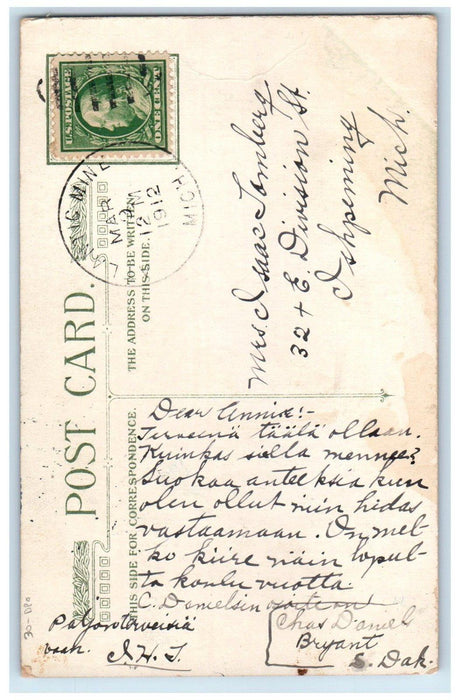 U.S. POSTAGE
ONE CENT
MINE
MAR
12 M
1912
MICH
POST CARD.
THE ADDRESS TO BE WRITTEN
ON THIS SIDE.
THIS SIDE FOR CORRESPONDENCE.
Mrs. Isaac Tomberg
324 E. Division St.
Ishpeming
Mich.
Dear Annie:-
Terveinä täälä ollaan.
Kuinkas siellä mennee?
Suokaa anteeksia kun
olen ollut niin hidas
vastaamaan. On mel-
ko kiire näin loput-
ta koulu vuotta.
C. Danielsin osoiteon
Chas Daniels
Bryant
S. Dak.
Paljon terveisiä
vaan. I. H. T.